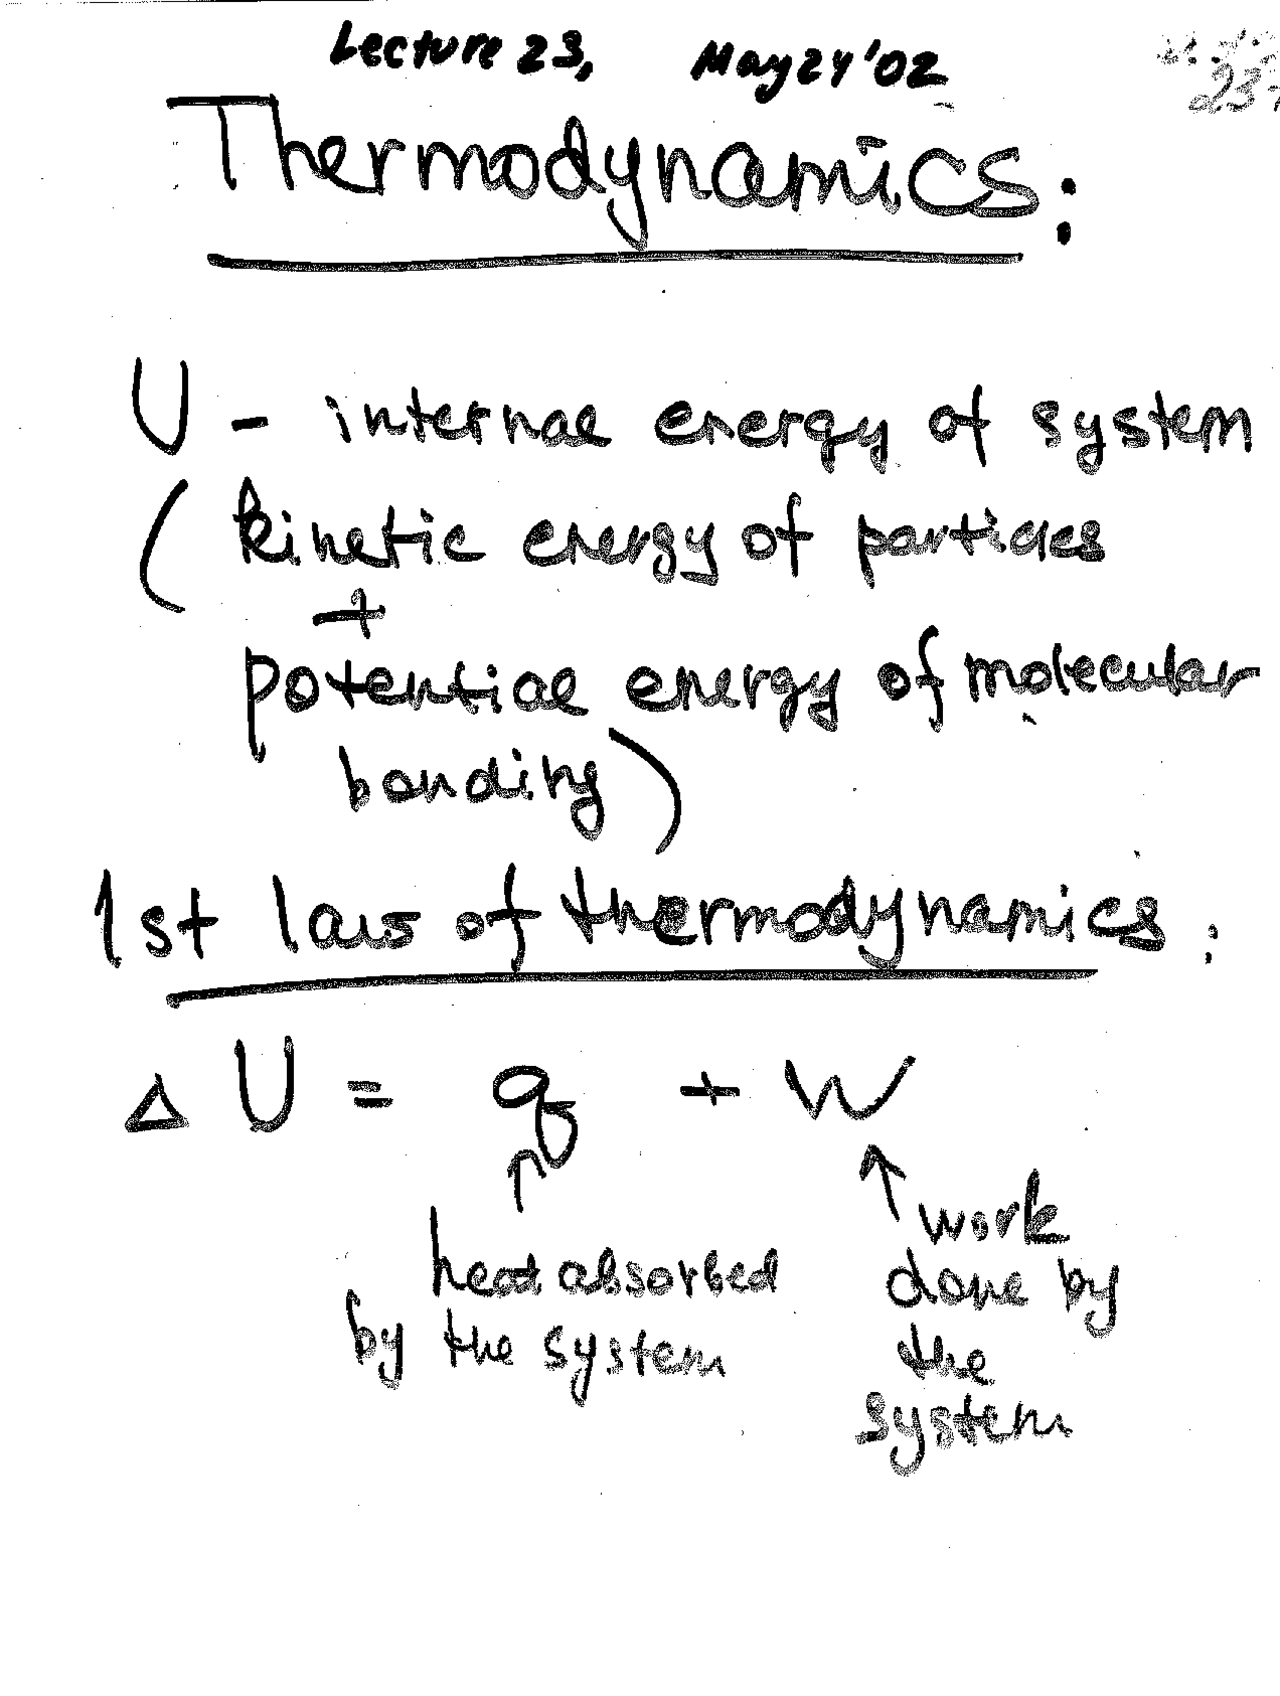 Lecture 23, May 24 '02
23-
Thermodynamics:
U - internal energy of system
( kinetic energy of particles
+
potential energy of molecular
bonding )
1st law of thermodynamics:
Δ U = q + W
↑ ↑
work
heat absorbed done by
by the system the
system